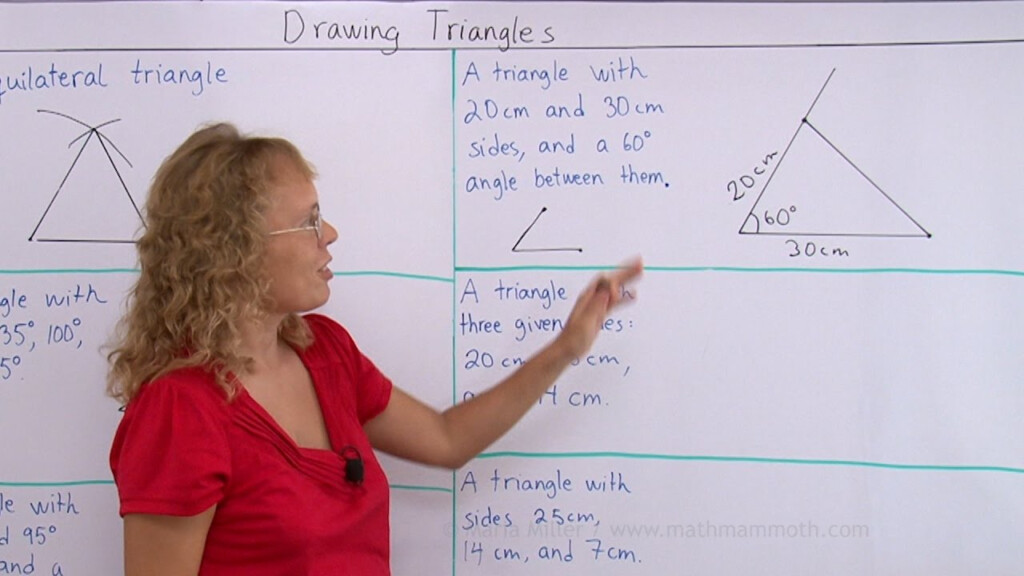 Drawing Triangles
quilateral triangle
gle with
35°, 100°,
5°.
le with
d 95°
and a
A triangle with
20cm and 30cm
sides, and a 60°
angle between them.
20cm
60°
30cm
A triangle
three given
20 cm
cm.
A triangle with
sides 25cm,
14 cm, and 7cm.
© Maria Miller / www.mathmammoth.com